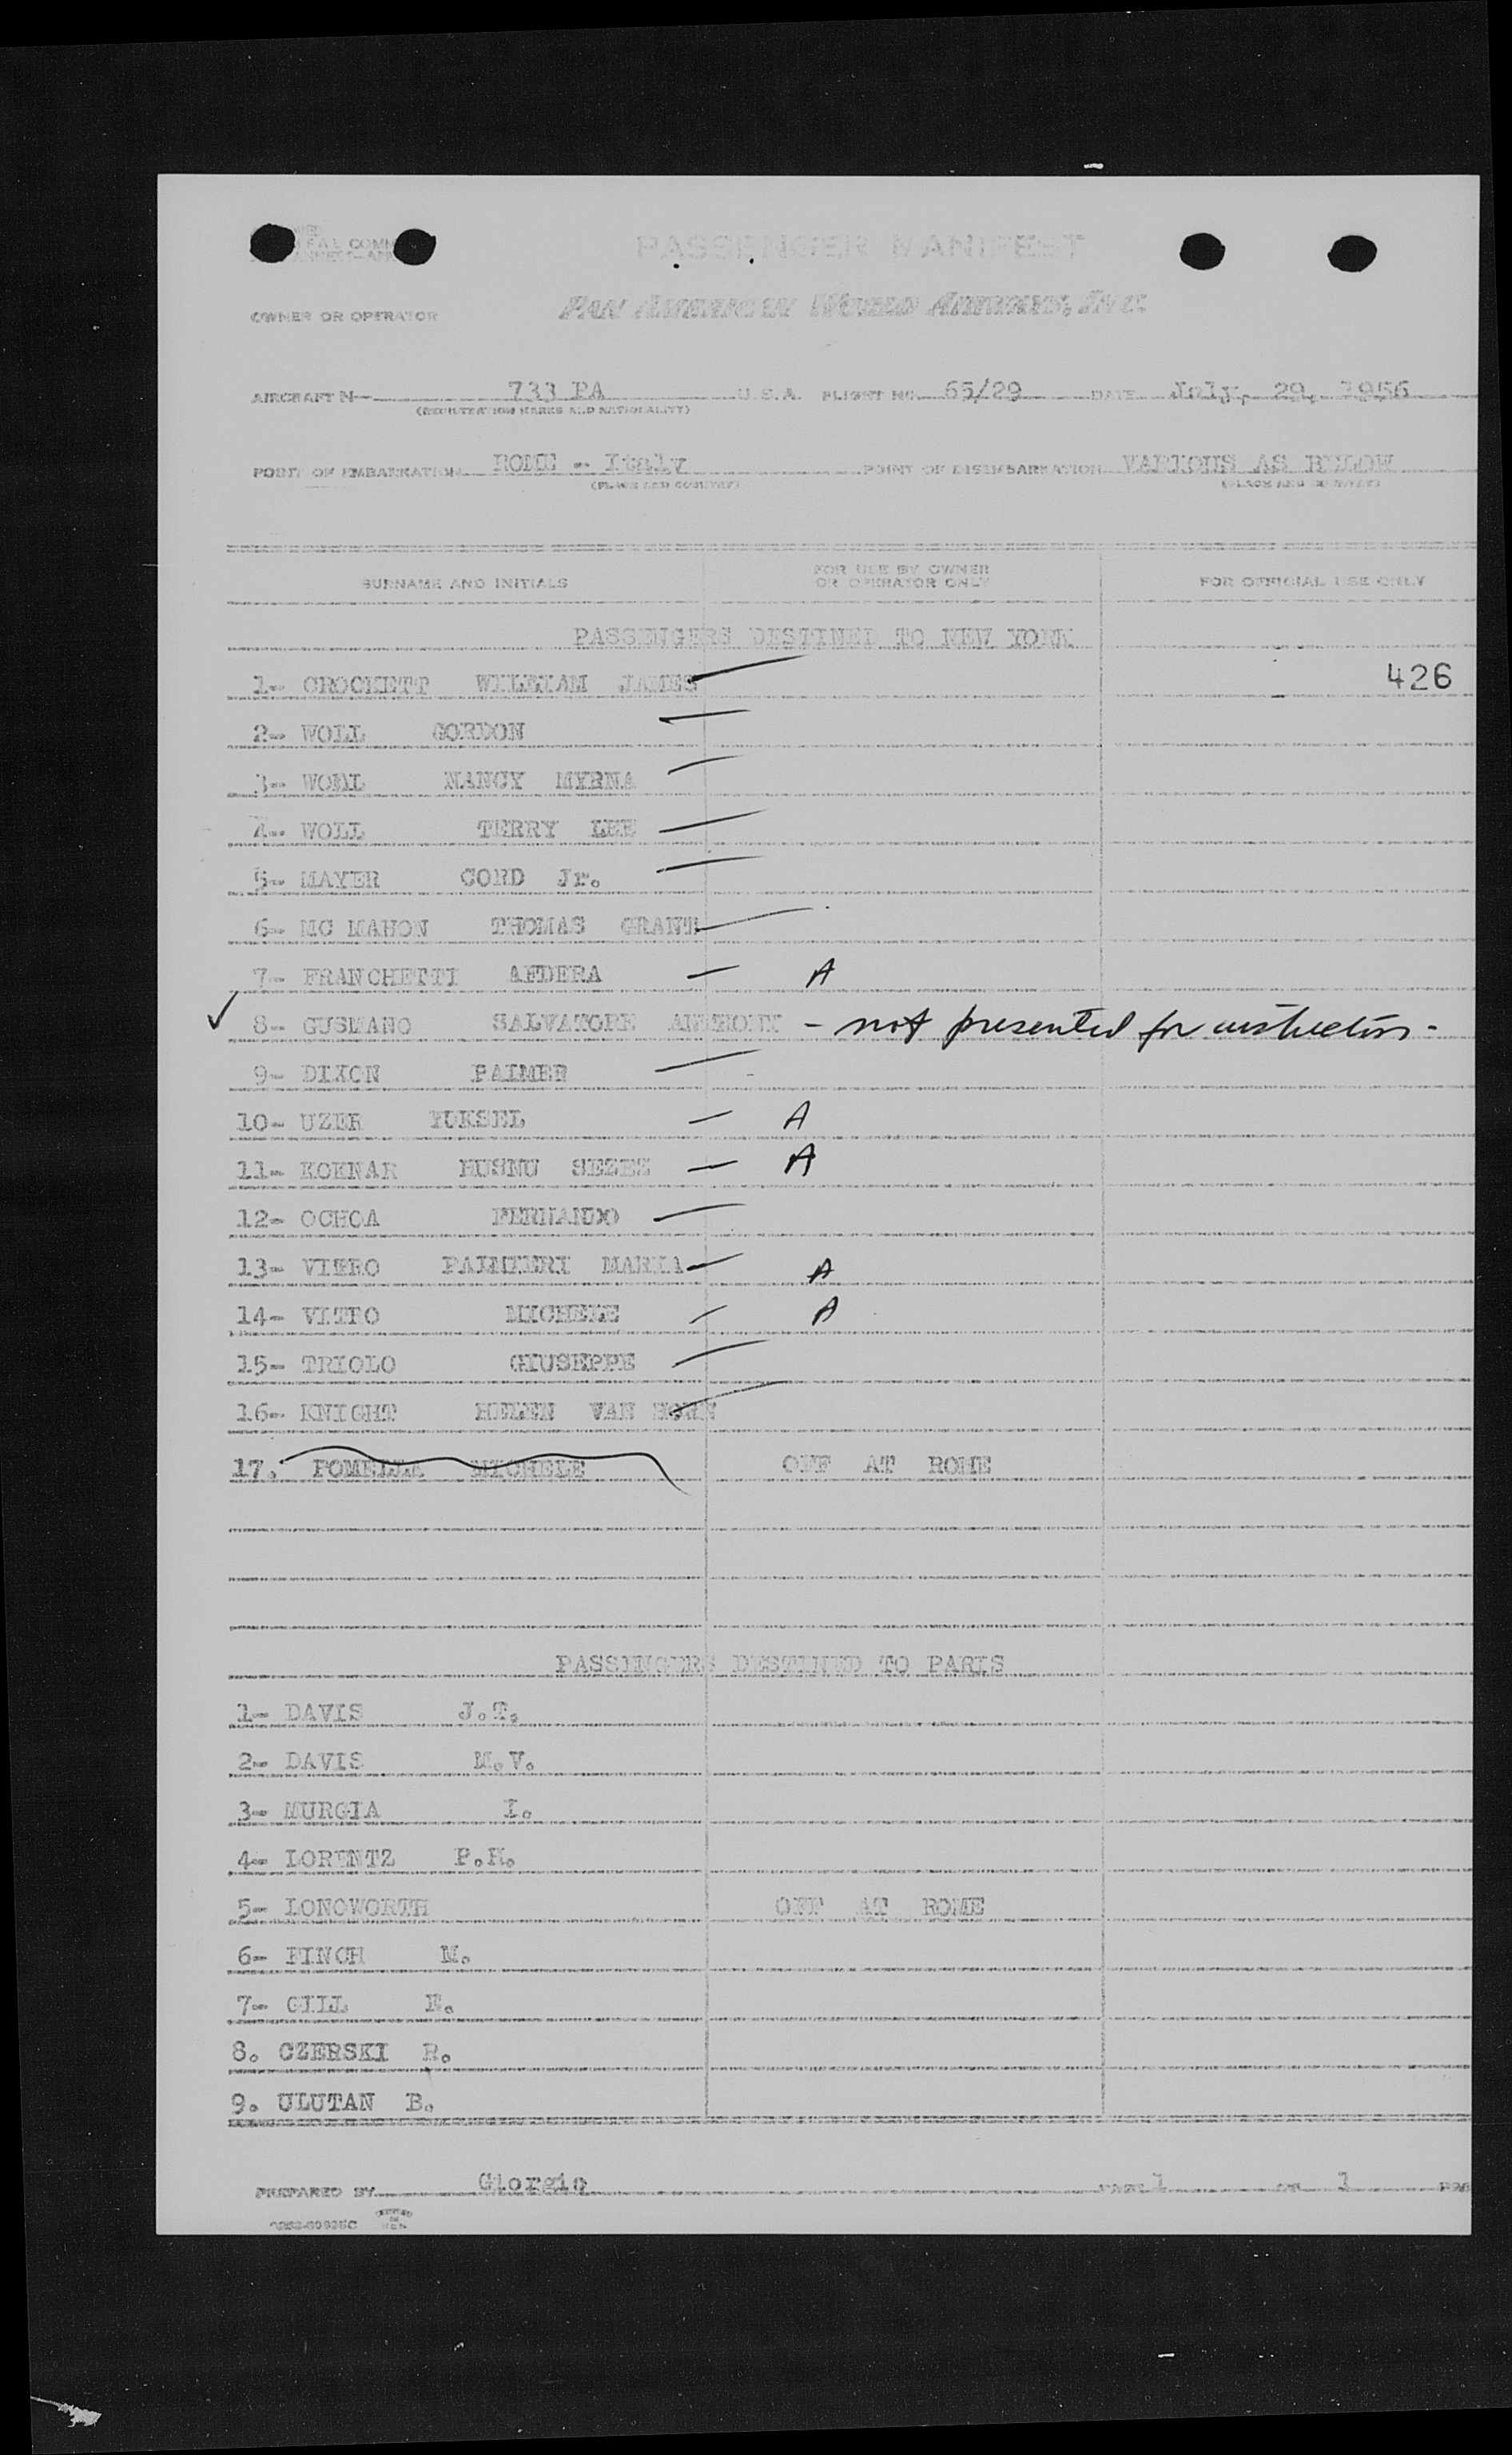 PASSENGER MANIFEST
OWNER OR OPERATOR PAN AMERICAN WORLD AIRWAYS, INC.
AIRCRAFT N- 733 PA U.S.A. FLIGHT NO. 65/29 DATE July, 29, 1956
(REGISTRATION MARKS AND NATIONALITY)
POINT OF EMBARKATION ROME - Italy POINT OF DISEMBARKATION VARIOUS AS BELOW
(PLACE AND COUNTRY) (PLACE AND COUNTRY)
SURNAME AND INITIALS FOR USE BY OWNER OR OPERATOR ONLY FOR OFFICIAL USE ONLY
PASSENGERS DESTINED TO NEW YORK
1- CROCKETT WILLIAM JAMES 426
2- WOLL GORDON
3- WOLL NANCY MYRNA
4- WOLL TERRY LEE
5- MAYER CORD Jr.
6- MC MAHON THOMAS GRANT
7- FRANCHETTI AFDERA A
8- GUSMANO SALVATORE ANTHONY - not presented for inspection -
9- DIXON PALMER
10- UZER YUKSEL A
11- KOKNAR HUSNU SEZES A
12- OCHOA FERNANDO
13- VITRO PALMIERI MARIA A
14- VITRO MICHELE A
15- TRIOLO GIUSEPPE
16- KNIGHT HELEN VAN HORN
17. MICHELE OFF AT ROME
PASSENGERS DESTINED TO PARIS
1- DAVIS J.T.
2- DAVIS M.V.
3- MURGIA I.
4- LORENTZ P.H.
5- LONGWORTH OFF AT ROME
6- FINCH M.
7- GILL E.
8. CZERSKI R.
9. ULUTAN B.
PREPARED BY Giorgio PAGE 1 OF 1